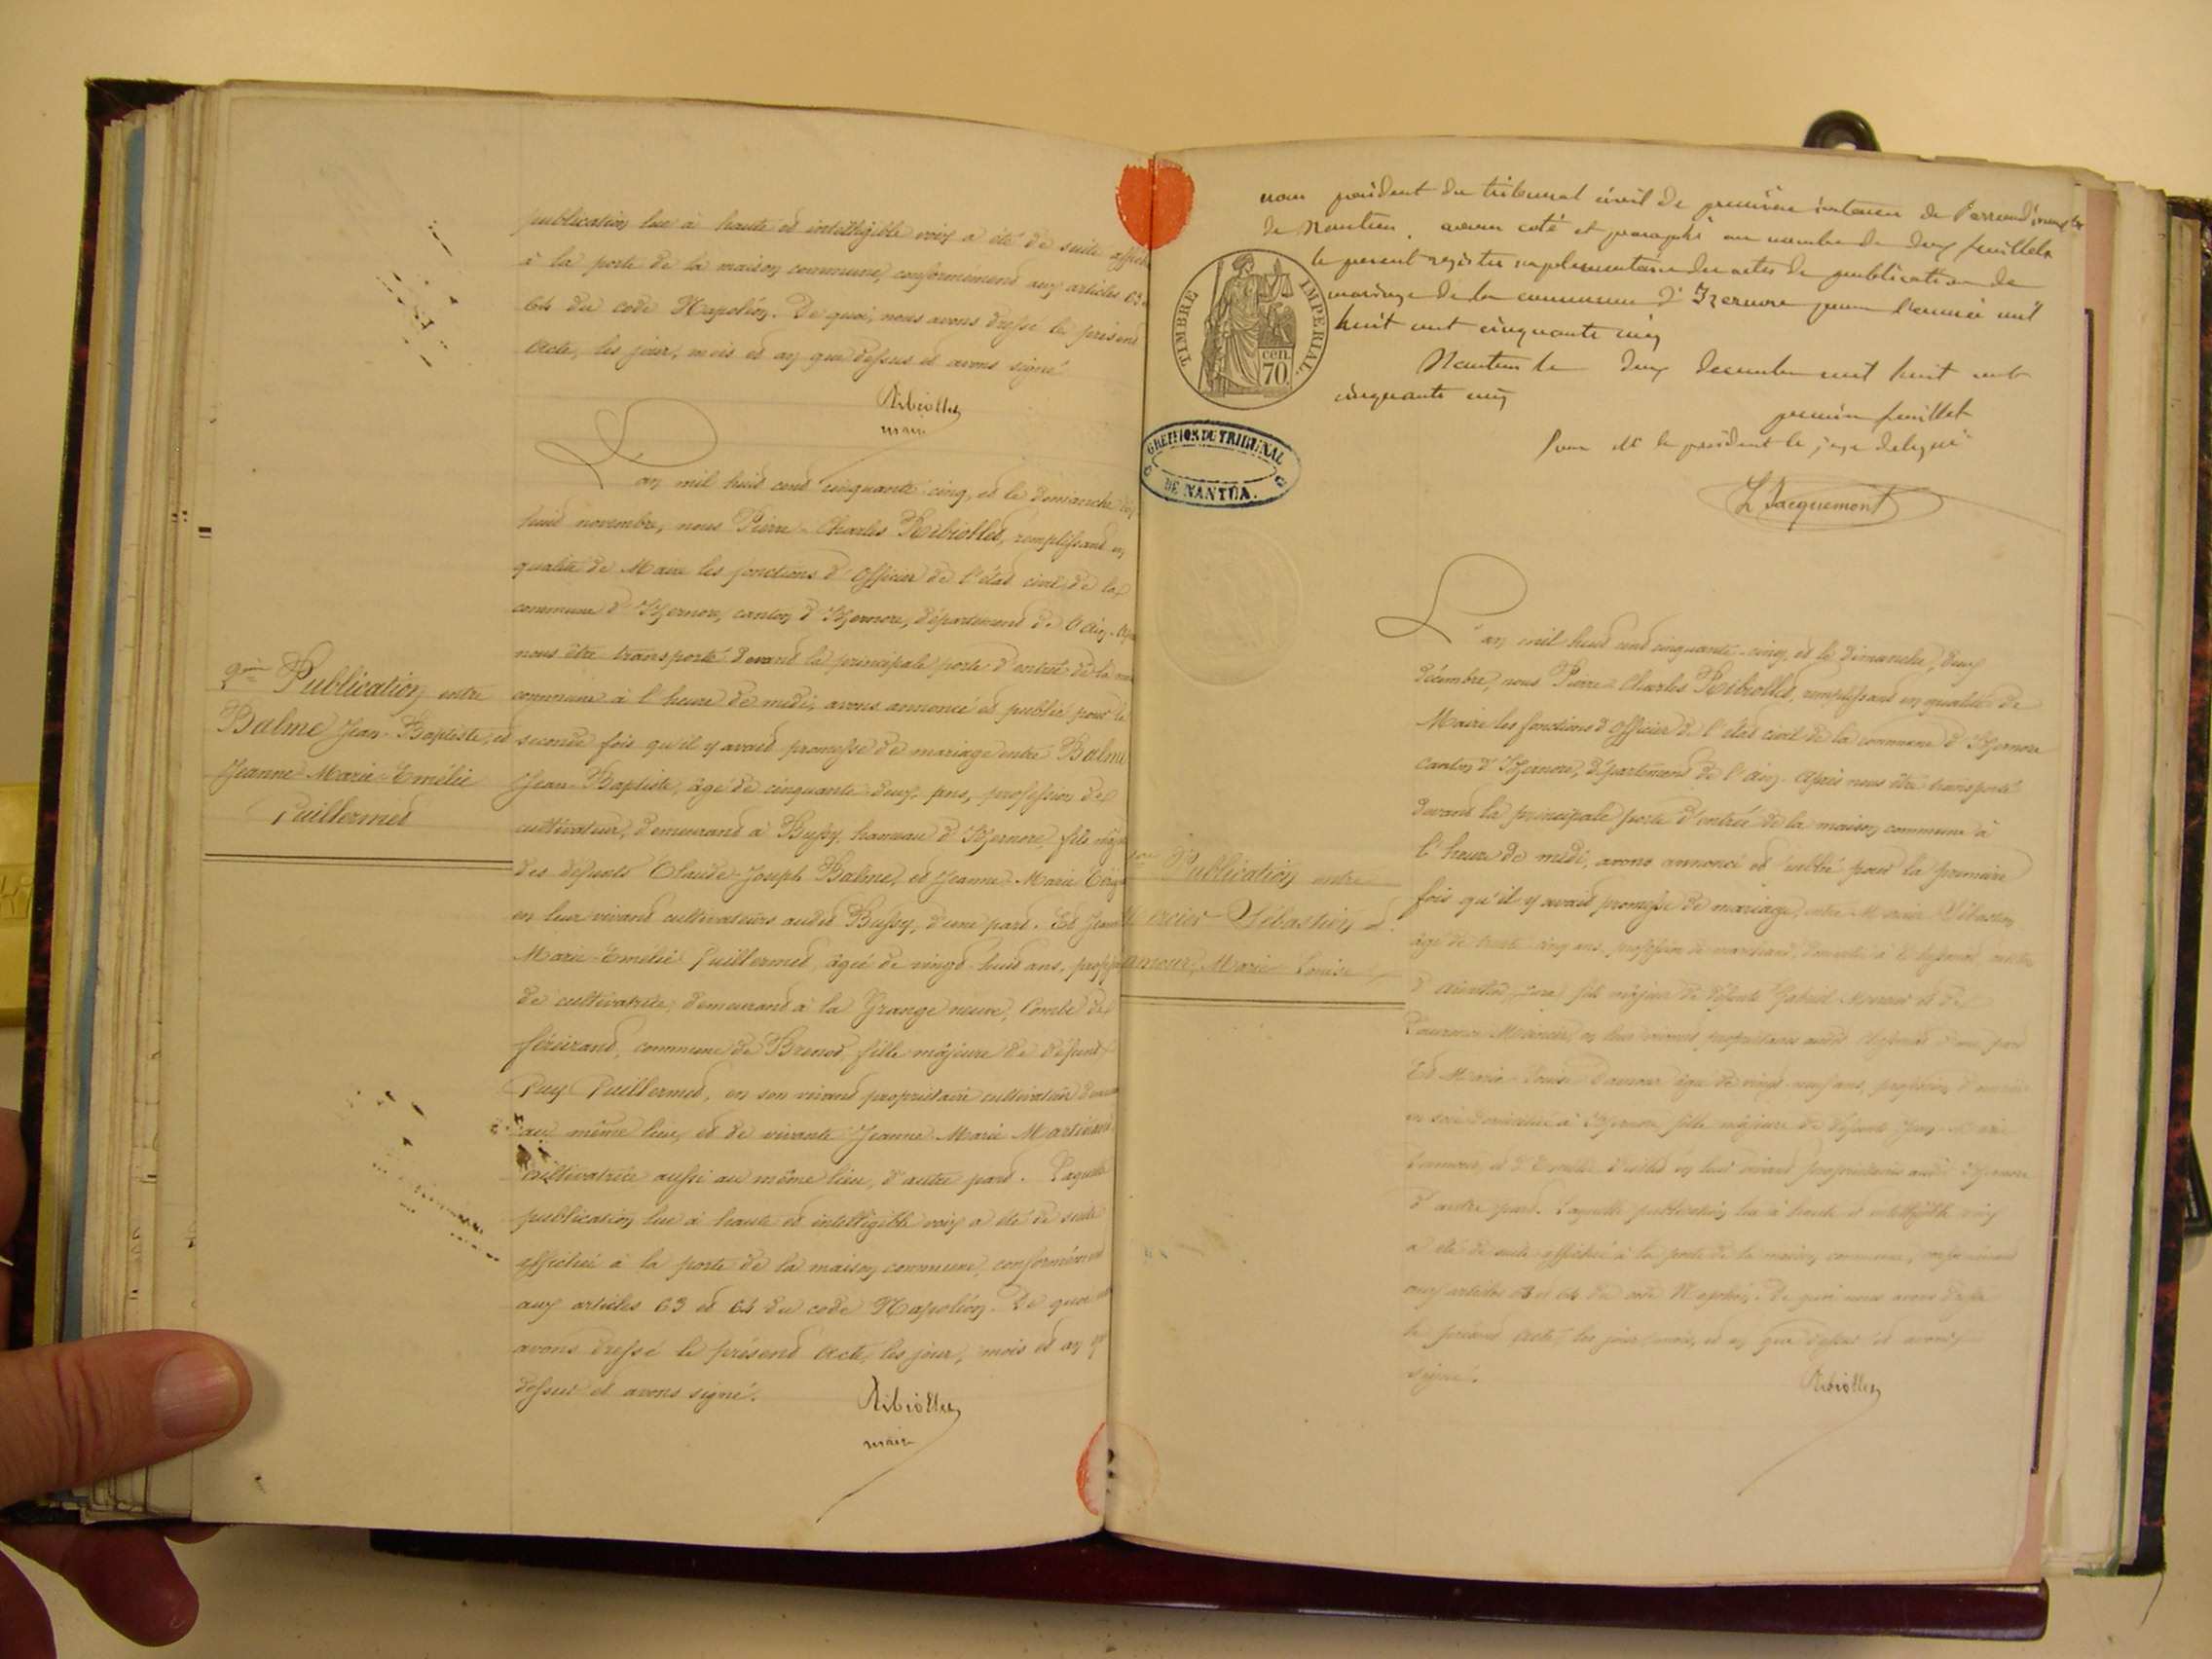 publication lue à haute et intelligible voix a été de suite affich
à la porte de la maison commune, conformément aux articles 63 et
64 du code Napoléon. De quoi, nous avons dressé le présent
Acte, les jour, mois et an que dessus et avons signé
Ribiollet
maire
L'an mil huit cent cinquante-cinq, et le dimanche dix
huit novembre, nous Pierre-Charles Ribiollet, remplissant en
qualité de Maire les fonctions d'Officier de l'état civil de la
commune d'Izernore, canton d'Izernore, département de l'Ain. Après
nous être transporté devant la principale porte d'entrée de la
commune à l'heure de midi, avons annoncé et publié pour la
seconde fois qu'il y avait promesse de mariage entre Balme
Jean-Baptiste, âgé de cinquante-deux ans, profession de
cultivateur, demeurant à Bussy, hameau d'Izernore, fils
des défunts Claude-Joseph Balme, et Jeanne-Marie
en leur vivant cultivateurs audit Bussy, d'une part. Et Jeanne
Marie-Emélie Puillermet, âgée de vingt-huit ans,
de cultivatrice, demeurant à la Grange neuve, Combe de
commune de Brenod, fille majeure de défunt
Puillermet, en son vivant propriétaire cultivateur
au même lieu, et de vivante Jeanne-Marie
cultivatrice aussi au même lieu, d'autre part. Laquelle
publication lue à haute et intelligible voix a été de suite
affichée à la porte de la maison commune, conformément
aux articles 63 et 64 du code Napoléon. De quoi
avons dressé le présent Acte, les jour, mois et an que
dessus et avons signé.
Ribiollet
maire
2ème Publication entre
Balme Jean-Baptiste, et
Jeanne-Marie-Emélie
Puillermet
nous président du tribunal civil de première instance de l'arrondissement
de Nantua, avons coté et paraphé au nombre de deux feuillets
le présent registre supplémentaire des actes de publication de
mariage de la commune d'Izernore pour l'année mil
huit cent cinquante cinq
Nantua le deux decembre mil huit cent
cinquante cinq
premier feuillet
Pour Mr le président le juge délégué
L Jacquemont
TIMBRE IMPERIAL
cen.
70
GREFFIER DU TRIBUNAL
DE NANTUA.
L'an mil huit cent cinquante-cinq, et le dimanche, deux
décembre, nous Pierre-Charles Ribiollet, remplissant en qualité de
Maire les fonctions d'Officier de l'état civil de la commune d'Izernore
canton d'Izernore, département de l'Ain. Après nous être transporté
devant la principale porte d'entrée de la maison commune à
l'heure de midi, avons annoncé et publié pour la première
fois qu'il y avait promesse de mariage, entre Mercier Sébastien
âgé de trente-cinq ans, profession de marchand,
fils majeur de défunts Gabriel Mercier et de
Laurence en leur vivant propriétaires d'une part
Et Marie-Louise Damour âgée de vingt-neuf ans, profession
en soie domiciliée à Izernore fille majeure de défunts
Damour, et en leur vivant propriétaires audit Izernore
d'autre part. Laquelle publication lue à haute et intelligible voix
a été de suite affichée à la porte de la maison commune, conformément
aux articles 63 et 64 du code Napoléon. De quoi nous avons dressé
le présent Acte, les jour, mois, et an que dessus et avons
signé.
Ribiollet
Publication entre
Mercier Sébastien et
Damour, Marie Louise